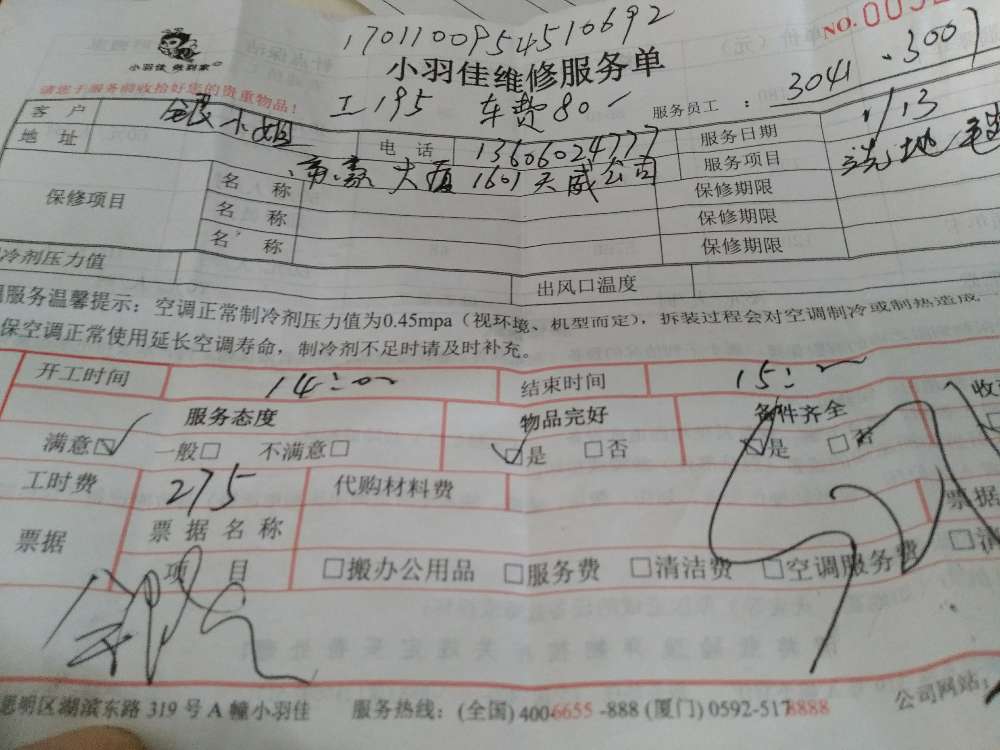 1701100954510692
NO.005
小羽佳 做到家
小羽佳维修服务单
请您于服务前收拾好您的贵重物品!
工195 车费80-
服务员工 : 3041 . 3007
客 户 小姐 电 话 13606024777 服务日期 1/13
地 址 大厦1601天威公司 服务项目 洗地毯
保修项目 名 称 保修期限
名 称 保修期限
名 称 保修期限
冷剂压力值 出风口温度
服务温馨提示:空调正常制冷剂压力值为0.45mpa(视环境、机型而定),拆装过程会对空调制冷或制热造成
保空调正常使用延长空调寿命,制冷剂不足时请及时补充。
开工时间 14:00 结束时间 15:00
服务态度 物品完好 备件齐全
满意☑ 一般□ 不满意□ ☑是 □否 ☑是 □否
工时费 275 代购材料费
票据 票据名称 票据
项 目 □搬办公用品 □服务费 □清洁费 □空调服务费
思明区湖滨东路 319 号 A 幢小羽佳 服务热线:(全国) 400-6655-888 (厦门) 0592-5178888 公司网站: